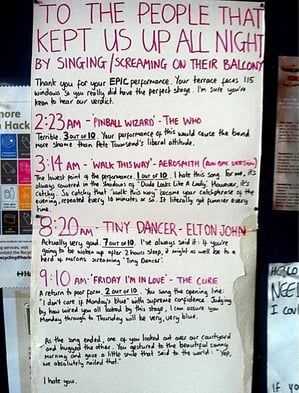 TO THE PEOPLE THAT
KEPT US UP ALL NIGHT
BY SINGING/SCREAMING ON THEIR BALCONY
Thank you for your EPIC performance. Your terrace faces 115
windows so you really did have the perfect stage. I'm sure you're
keen to hear our verdict.
2:23AM - 'PINBALL WIZARD' - THE WHO
Terrible. 3 out of 10. Your performance of this would cause the band
more shame than Pete Townsend's liberal attitude.
3:14 AM - 'WALK THIS WAY' - AEROSMITH (RUN DMC VERSION)
The lowest point of the performance. 1 out of 10. I hate this song. For me, it's
always covered in the shadows of 'Dude Looks Like A Lady'. However, it's
catchy. So catchy that 'walk this way' became your catchphrase of the
evening, repeated every 10 minutes or so. It literally got funnier every
time.
8:20AM - TINY DANCER - ELTON JOHN
Actually very good. 7 out of 10. I've always said it: if you're
going to be woken up after 2 hours sleep, it might as well be to a
herd of morons screaming 'Tiny Dancer'.
9:10 AM 'FRIDAY I'M IN LOVE' - THE CURE
A return to poor form. 2 out of 10. You sang the opening line:
"I don't care if Monday's blue" with supreme confidence. Judging
by how wired you all looked by this stage, I can assure you
Monday through to Thursday will be very, very blue.
As the song ended, one of you looked out over our courtyard
and hugged the other. You gestured to the beautiful sunny
morning and gave a little smile that said to the world: "Yep,
we absolutely nailed that."
I hate you.
more
Hack
HELLO
NEE
I COUL
IF YO